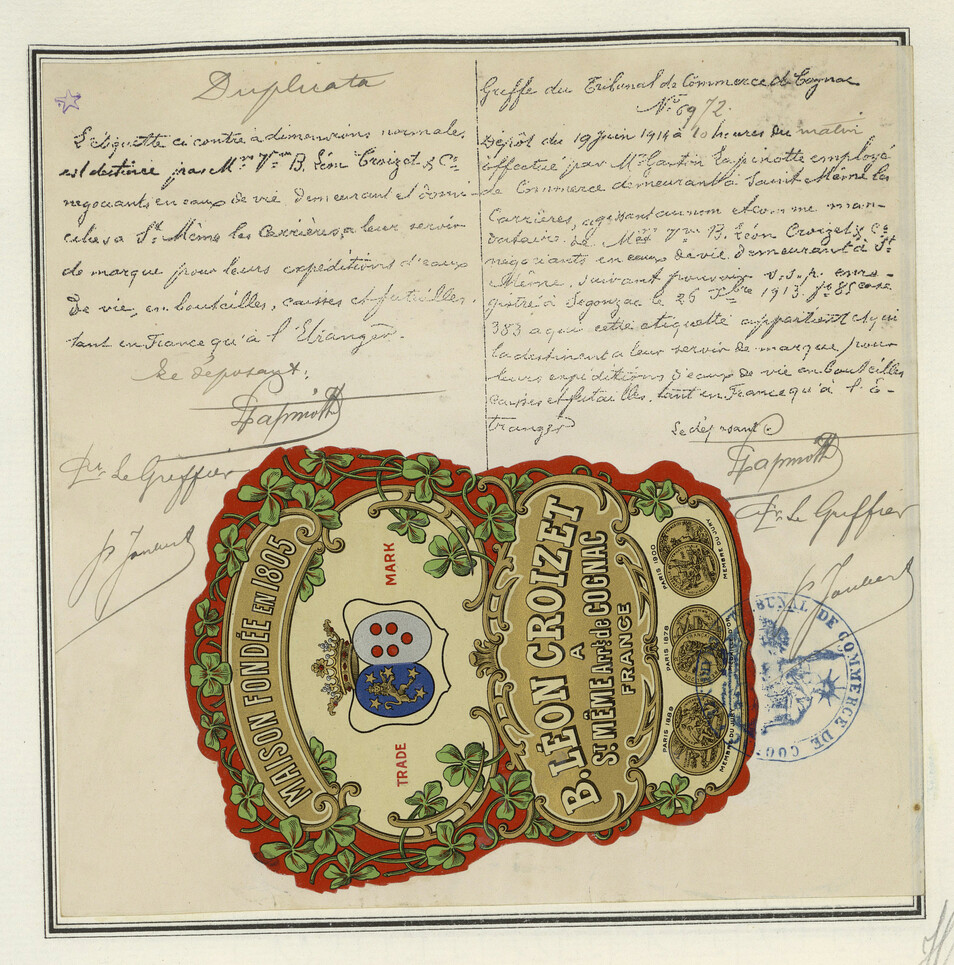 Duplicata
L'étiquette ci contre à dimensions normales,
est destinée par Mme Vve B. Léon Croizet & Cie
négociants en eaux de vie, demeurant et domi-
ciliés à St Même les Carrières, à leur servir
de marque pour leurs expéditions d'eaux
de vie, en bouteilles, caisses et futailles,
tant en France qu'à l'Etranger.
Le déposant,
Lapinotte
Pr Le Greffier
P Joubert
Greffe du Tribunal de Commerce de Cognac
No 6972.
Dépôt du 19 Juin 1914 à 10 heures du matin
effectué par Mr Gaston Lapinotte employé
de Commerce demeurant à Saint Même les
Carrières, agissant au nom et comme man-
dataire, de Mme Vve B. Léon Croizet & Cie
négociants en eaux de vie, demeurant à St
Même, suivant pouvoir s.s.p. enre-
gistré à Segonzac le 26 1913 fo 85 case
383 a qui cette étiquette appartient et qui
la destinent a leur servir de marque pour
leurs expéditions d'eaux de vie en bouteilles
caisses et futailles, tant en France qu'à l'é-
tranger
Le déposant
Lapinotte
Pr Le Greffier
P Joubert
MAISON FONDÉE EN 1805
TRADE MARK
B. LÉON CROIZET
A
St MÊME Arrt de COGNAC
FRANCE
PARIS 1889
MEMBRE DU JURY
PARIS 1878
PARIS 1900
MEMBRE DU JURY
TRIBUNAL DE COMMERCE DE COGNAC